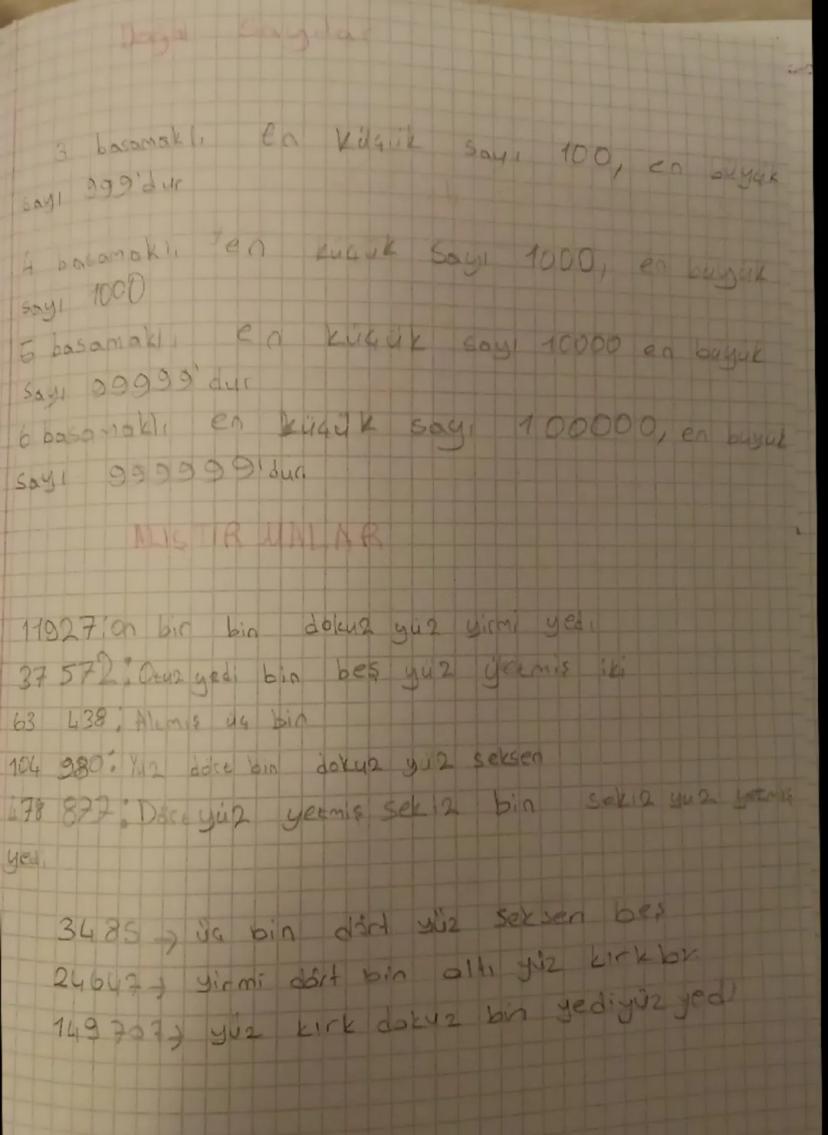 Doğal Sayılar
3 basamaklı en küçük sayı 100, en büyük
sayı 999'dur
4 basamaklı en küçük sayı 1000, en büyük
sayı 1000
5 basamaklı en küçük sayı 10000 en büyük
sayı 99999'dur
6 basamaklı en küçük sayı 100000, en büyük
sayı 999999'dur.
ALIŞTIRMALAR
11927: on bir bin dokuz yüz yirmi yedi
37 572: Otuz yedi bin beş yüz yetmiş iki
63 438: Atmış üç bin
104 980: Yüz dört bin dokuz yüz seksen
478 877: Dört yüz yetmiş sekiz bin sekiz yüz yetmiş
yedi
3485 → üç bin dört yüz seksen beş
→ yirmi dört bin altı yüz kırk
149 707 → yüz kırk dokuz bin yediyüz yedi